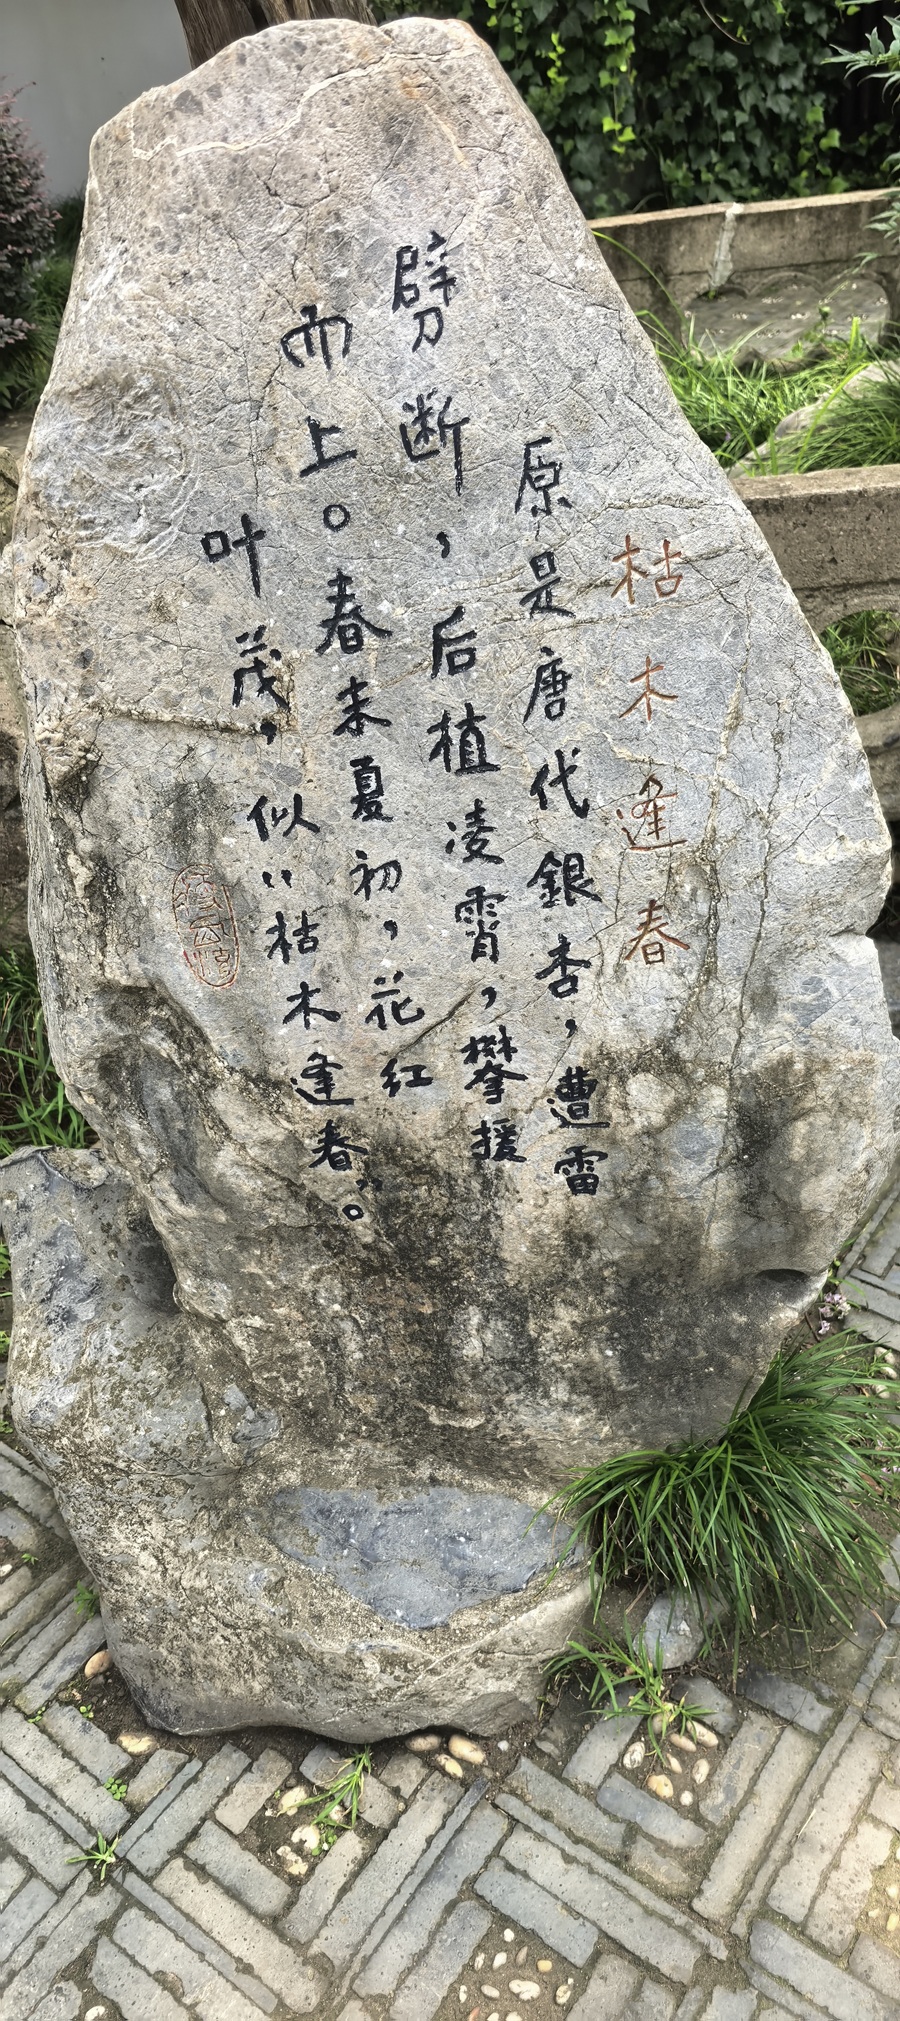 枯木逢春
原是唐代銀杏，遭雷
劈断，后植凌霄，攀援
而上。春来夏初，花红
叶茂，似“枯木逢春”。